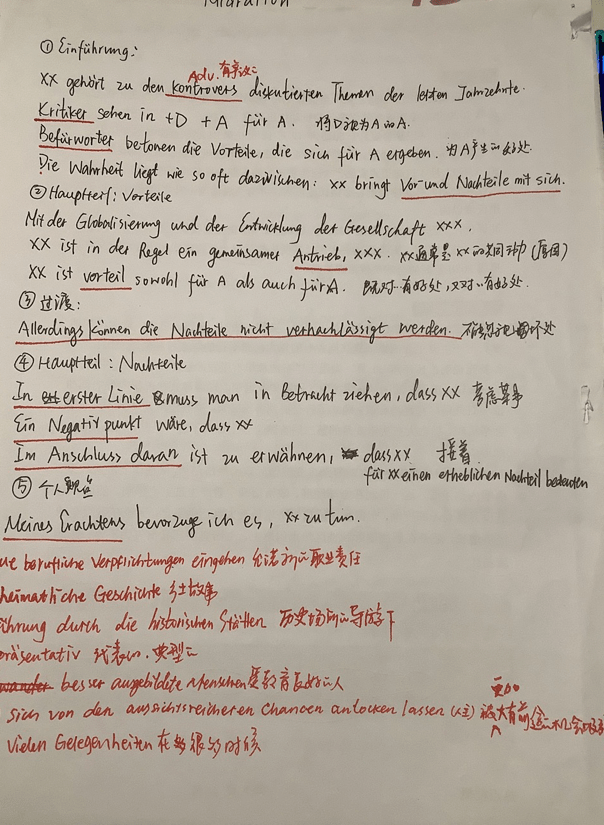 Migration
① Einführung:
Adv. 有争议
xx gehört zu den kontrovers diskutierten Themen der letzten Jahrzehnte.
Kritiker sehen in +D +A für A. 将D视为A的A.
Befürworter betonen die Vorteile, die sich für A ergeben. 为A产生的好处.
Die Wahrheit liegt wie so oft dazwischen: xx bringt Vor-und Nachteile mit sich.
② Hauptteil: Vorteile
Mit der Globalisierung und der Entwicklung der Gesellschaft xxx.
xx ist in der Regel ein gemeinsamer Antrieb, xxx. xx通常是xx的共同动力(原因)
xx ist vorteil sowohl für A als auch für A. 既对..有好处,又对..有好处.
③ 过渡:
Allerdings können die Nachteile nicht vernachlässigt werden. 坏处
④ Hauptteil: Nachteile
In erster Linie muss man in Betracht ziehen, dass xx 考虑某事
Ein Negativpunkt wäre, dass xx
Im Anschluss daran ist zu erwähnen, dass xx 接着
für xx einen erheblichen Nachteil bedeuten
⑤ 个人观点
Meines Erachtens bevorzuge ich es, xx zu tun.
ue berufliche Verpflichtungen eingehen 允诺新的职业责任
heimatliche Geschichte 乡土故事
ührung durch die historischen Stätten 历史场所的导游下
präsentativ 代表的.典型的
besser ausgebildete Menschen 受教育良好的人
更加
sich von den aussichtsreicheren Chancen anlocken lassen (人主) 被大有前途的机会吸引
vielen Gelegenheiten 在很多时候